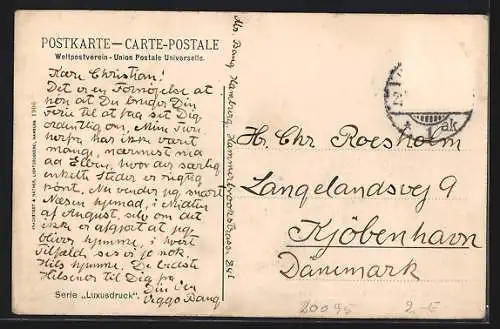 POSTKARTE — CARTE-POSTALE
Weltpostverein - Union Postale Universelle.
Kære Christian!
Det er en Fornøjelse at
høre at Du bruger Din
Ferie til at faa set Dig
ordentlig om, Mine Ture
herfra har ikke været
mange, nærmest ned
ad Elben, hvor der særlig
enkelte Steder er rigtig
kønt. Nu vender jeg snart
Næsen hjemad, i Midten
af August, selv om det
ikke er afgjort at jeg
bliver hjemme, i hvert
Tilfælde ses vi jo nok.
Hils hjemme. De bedste
Hilsener til Dig fra
Din Ven
Viggo Bang
Serie „Luxusdruck".
Bang Hamburg, Hammerbrookstrasse 541
1906
Hr. Chr Roesholm
Langelandsvej 9
Kjöbenhavn
Danemark
20095
2.-E